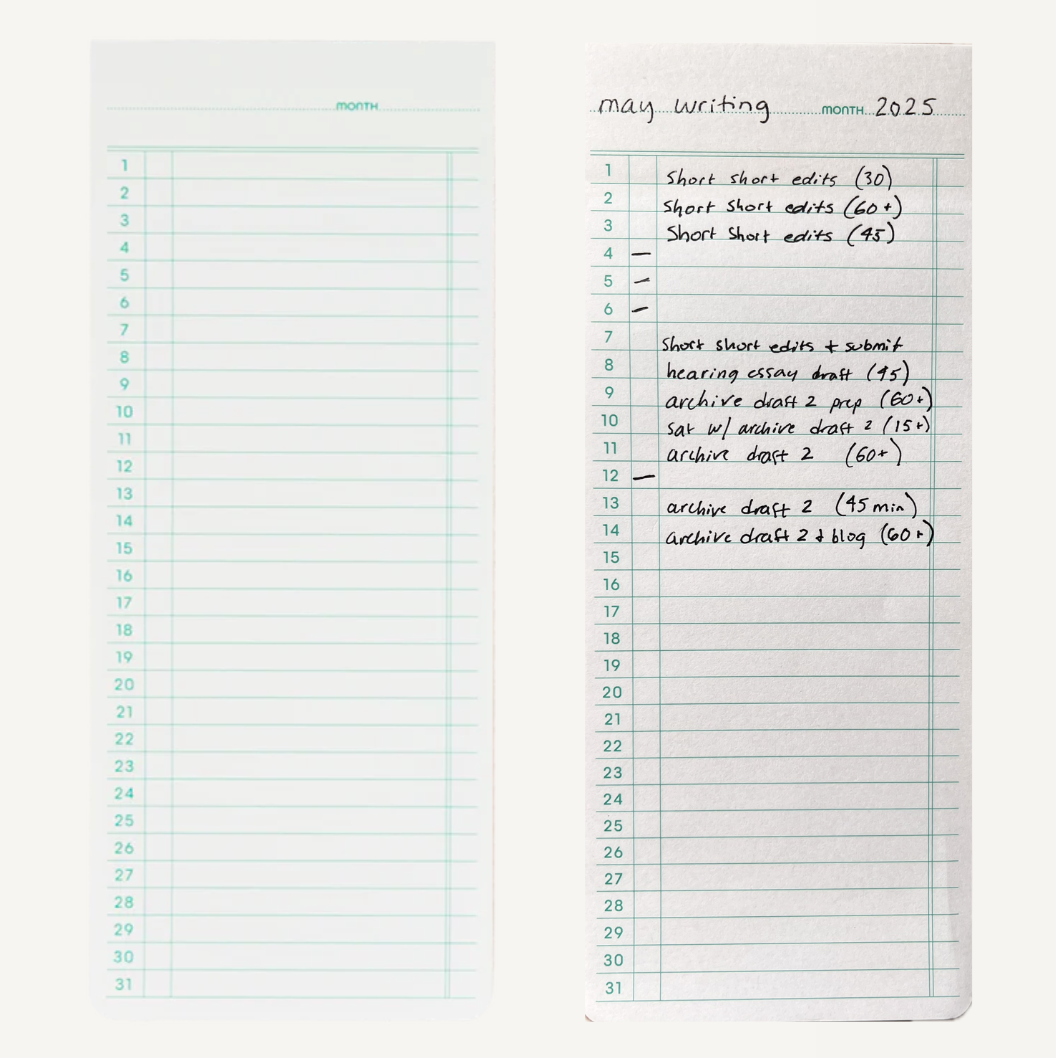 MONTH
1
2
3
4
5
6
7
8
9
10
11
12
13
14
15
16
17
18
19
20
21
22
23
24
25
26
27
28
29
30
31
may writing MONTH 2025
1 short short edits (30)
2 short short edits (60+)
3 short short edits (45)
4 —
5 —
6 —
7 short short edits + submit
8 hearing essay draft (45)
9 archive draft 2 prep (60+)
10 sat w/ archive draft 2 (15+)
11 archive draft 2 (60+)
12 —
13 archive draft 2 (45 min)
14 archive draft 2 & blog (60+)
15
16
17
18
19
20
21
22
23
24
25
26
27
28
29
30
31